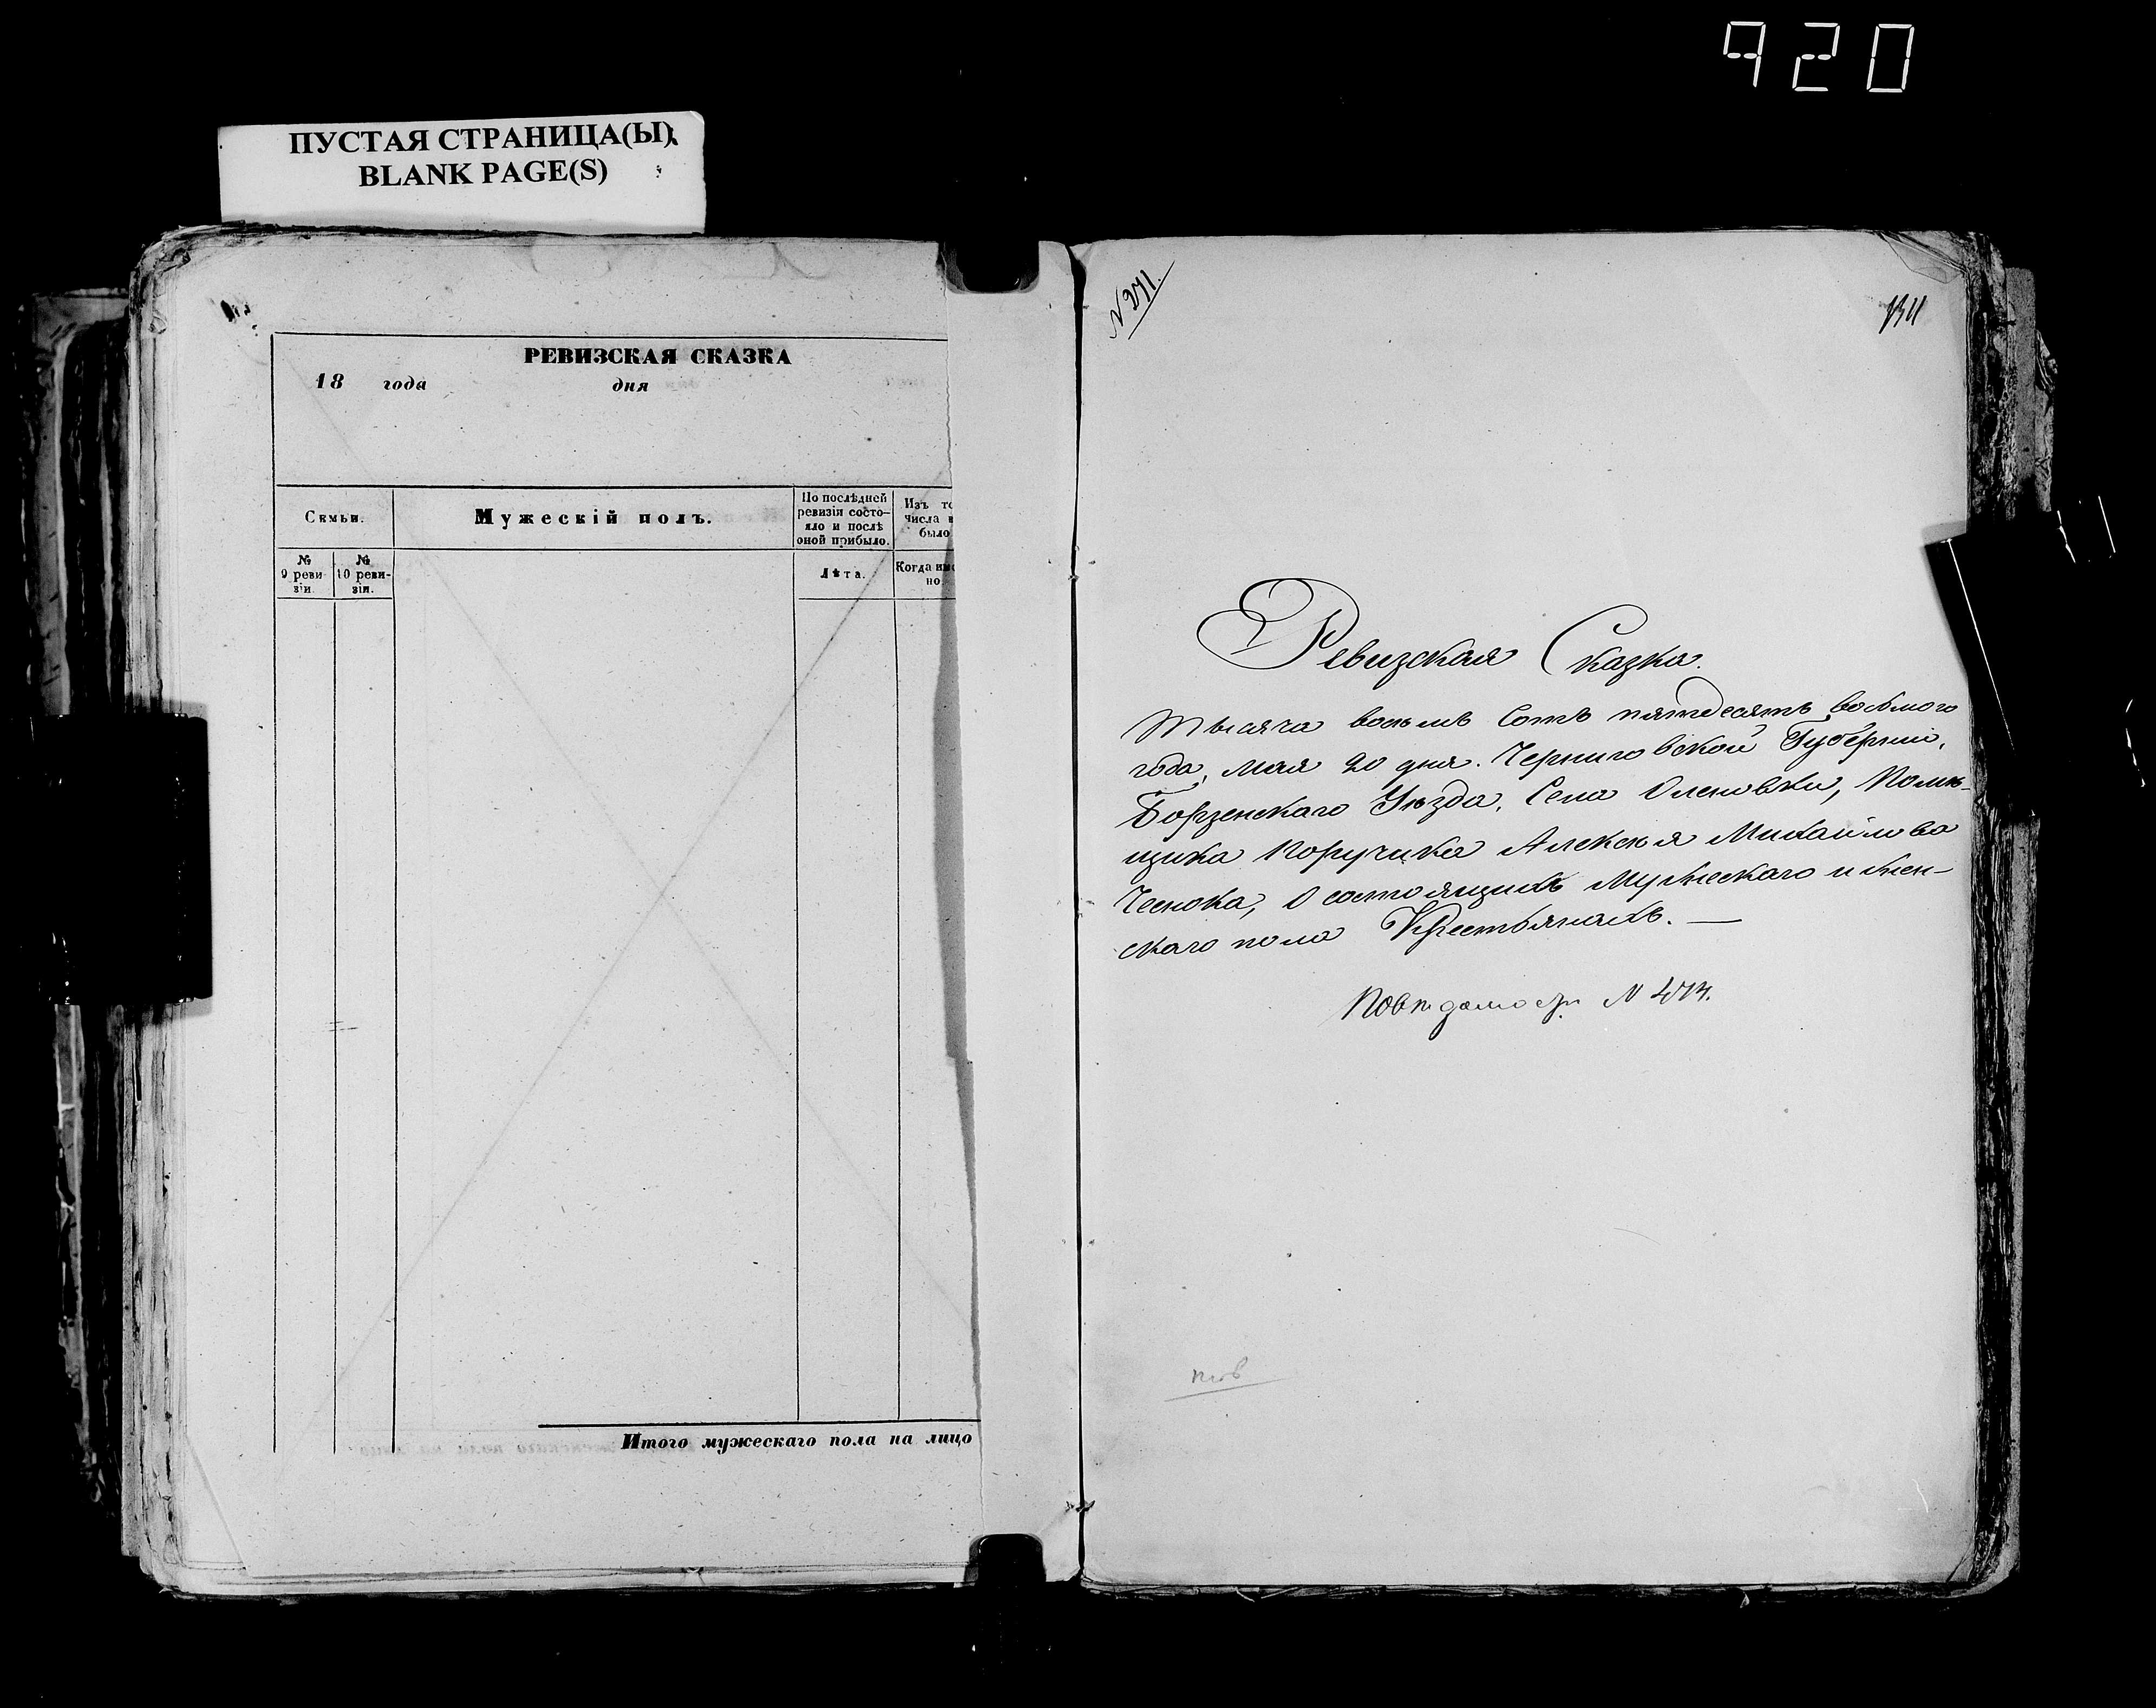 920
ПУСТАЯ СТРАНИЦА(Ы)
BLANK PAGE(S)
РЕВИЗСКАЯ СКАЗКА
18 года дня
Семьи.
Мужескій полъ.
По послѣдней
ревизія состо-
яло и послѣ
оной прибыло.
Изъ
числа
было
№
9 реви-
зіи.
№
10 реви-
зіи.
Лѣта.
Когда
но.
Итого мужескаго пола на лицо
N 271.
Ревизская Сказка.
Тысяча восемь сотъ пятдесятъ восьмого
года, мая 20 дня. Черниговской Губерніи,
Борзенскаго Уѣзда, Села Оленовки, Помѣ-
щика Поручика Алексѣя Михайлова
Чеснока, О состоящихъ Мужескаго и жен-
скаго пола Крестьянахъ. —
По вѣдомости N 474.